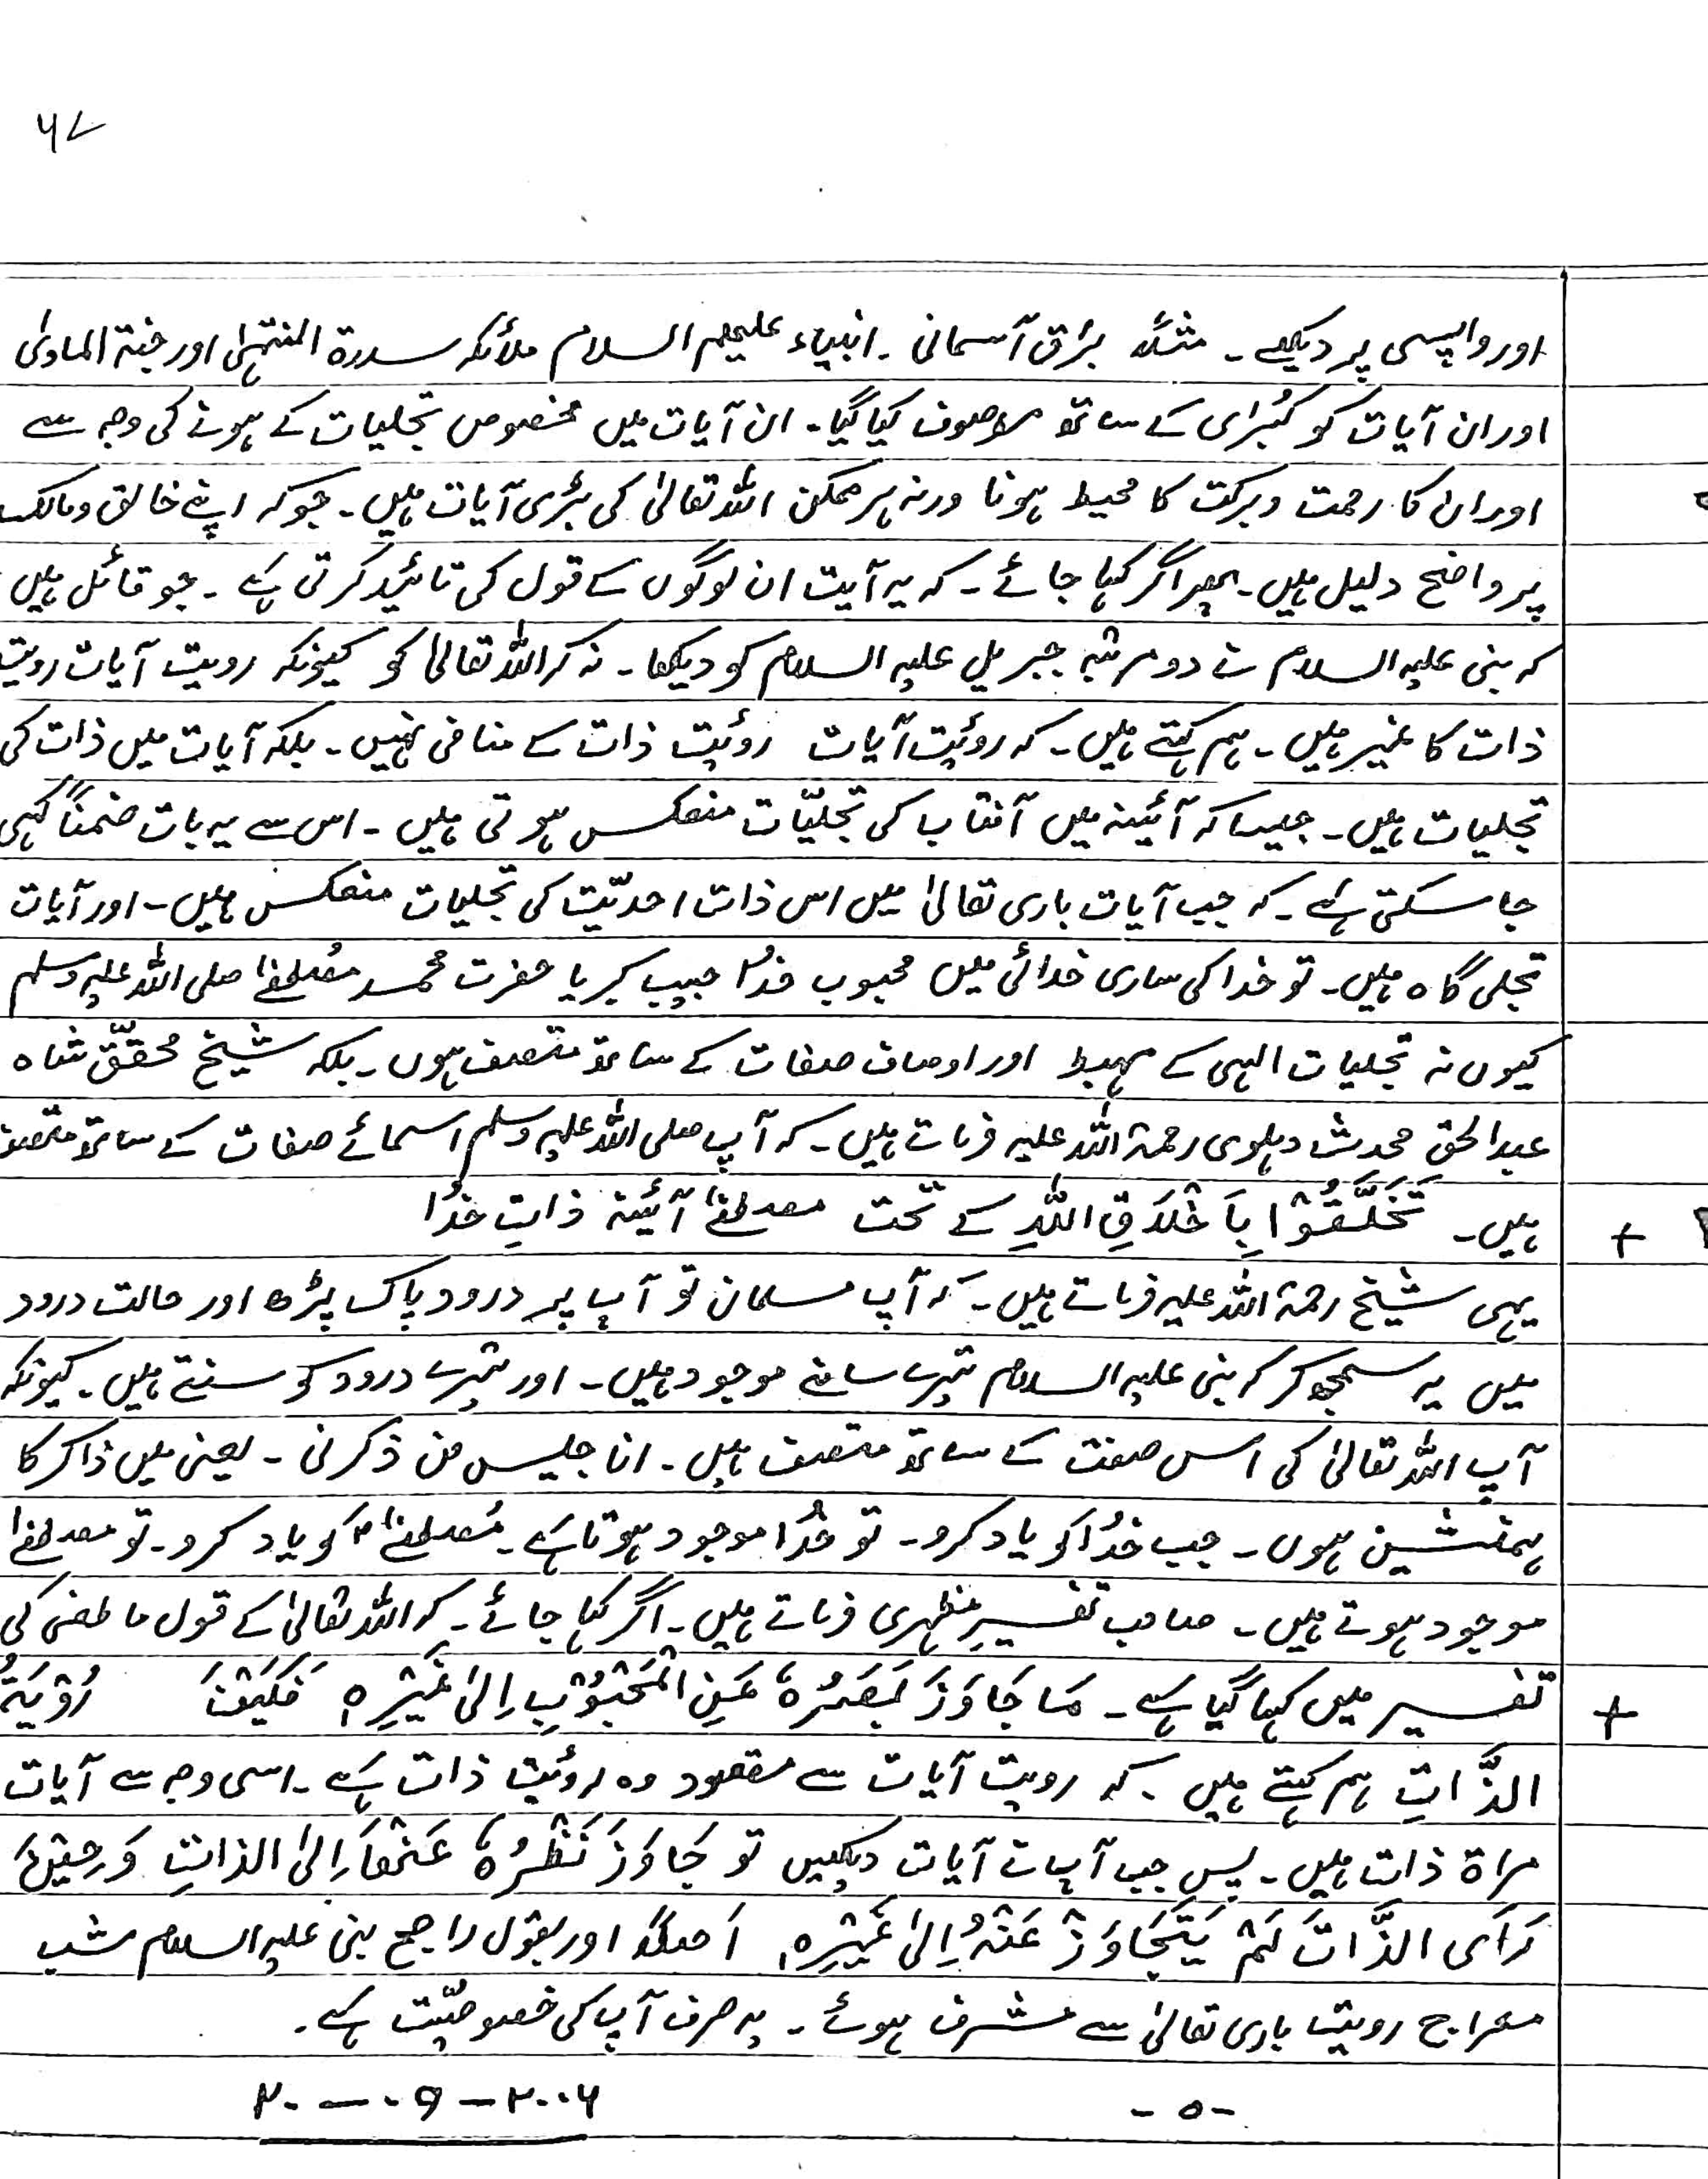 ۶۷
اور واپسی پر دیکھے۔ مثلاً براق آسمانی۔ انبیاء علیھم السلام ملائکہ سدرۃ المنتہیٰ اور جنۃ الماویٰ
اور ان آیات کو کُبرٰی کے ساتھ موصوف کیا گیا۔ ان آیات میں مخصوص تجلیات کے ہونے کی وجہ سے
اور ان کا رحمت و برکت کا محیط ہونا ورنہ ہر ممکن اللہ تعالیٰ کی بڑی آیات ہیں۔ جو کہ اپنے خالق و مالک
پر واضح دلیل ہیں۔ پھر اگر کہا جائے۔ کہ یہ آیت ان لوگوں کے قول کی تائید کرتی ہے۔ جو قائل ہیں
کہ نبی علیہ السلام نے دو مرتبہ جبریل علیہ السلام کو دیکھا۔ نہ کہ اللہ تعالیٰ کو کیونکہ رویت آیات رویت
ذات کا غیر ہیں۔ ہم کہتے ہیں۔ کہ روئیت آیات روئیت ذات کے منافی نہیں۔ بلکہ آیات میں ذات کی
تجلیات ہیں۔ جیسا کہ آئینہ میں آفتاب کی تجلیّات منعکس ہوتی ہیں۔ اس سے یہ بات ضمناً کہی
جا سکتی ہے۔ کہ جب آیات باری تعالیٰ میں اس ذات احدیّت کی تجلیات منعکس ہیں۔ اور آیات
تجلی گاہ ہیں۔ تو خدا کی ساری خدائی میں محبوب خدُا حبیب کبریا حضرت محمد مُصطفےٰ صلی اللہ علیہ وسلم
کیوں نہ تجلیات الہی کے مہبط اور اوصاف صفات کے ساتھ متصف ہوں۔ بلکہ شیخ محقّق شاہ
عبدالحق محدث دہلوی رحمۃ اللہ علیہ فرماتے ہیں۔ کہ آپ صلی اللہ علیہ وسلم اسمائے صفات کے ساتھ متصف
ہیں۔ تَخَلَّقُوْا بِاَخْلَاقِ اللّٰہِ کے تحت مصطفےٰ آئینہ ذاتِ خدُا
+
یہی شیخ رحمۃ اللہ علیہ فرماتے ہیں۔ کہ آپ مسلمان تو آپ پر درود پاک پڑھ اور حالت درود
میں یہ سمجھ کر کہ نبی علیہ السلام تیرے سامنے موجود ہیں۔ اور تیرے درود کو سنتے ہیں۔ کیونکہ
آپ اللہ تعالیٰ کی اس صفت کے ساتھ متصف ہیں۔ انا جلیس من ذکرنی۔ یعنی میں ذاکر کا
ہمنشین ہوں۔ جب خدُا کو یاد کرو۔ تو خُدا موجود ہوتا ہے۔ مُصطفےٰ کو یاد کرو۔ تو مصطفےٰ
موجود ہوتے ہیں۔ صاحب تفسیرِ مظہری فرماتے ہیں۔ اگر کہا جائے۔ کہ اللہ تعالیٰ کے قول ما طغیٰ کی
تفسیر میں کہا گیا ہے۔ مَا جَاوَزَ بَصَرُہٗ عَنِ الْمَحْبُوْبِ اِلیٰ غَیْرِہٖ فَکَیْفَ رُؤْیَۃُ
+
الذَّاتِ ہم کہتے ہیں۔ کہ رویت آیات سے مقصود وہ روئیت ذات ہے۔ اسی وجہ سے آیات
مراۃ ذات ہیں۔ پس جب آپ نے آیات دیکھیں تو جَاوَزَ نَظْرُہٗ عَنْھَا اِلیٰ الذاتِ وَ حِیْنَ
رَاَی الذَّاتَ لَمْ یَتَجَاوَزْ عَنْہُ اِلیٰ غَیْرِہٖ اَصلًا اور بقول راجح نبی علیہ السلام شب
معراج رویت باری تعالیٰ سے مشرف ہوئے۔ یہ صرف آپ کی خصوصیّت ہے۔
-۵-
۲۰-۰۹-۲۰۰۶